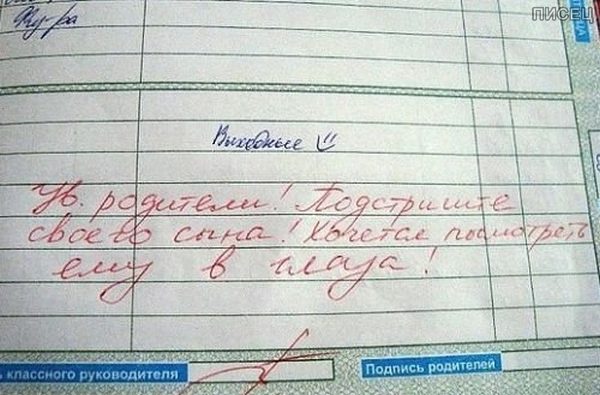 ПИСЕЦ
Фу-ра
Выходные
Ув. родители! Подстригите
своего сына! Хочется посмотреть
ему в глаза!
классного руководителя
Подпись родителей